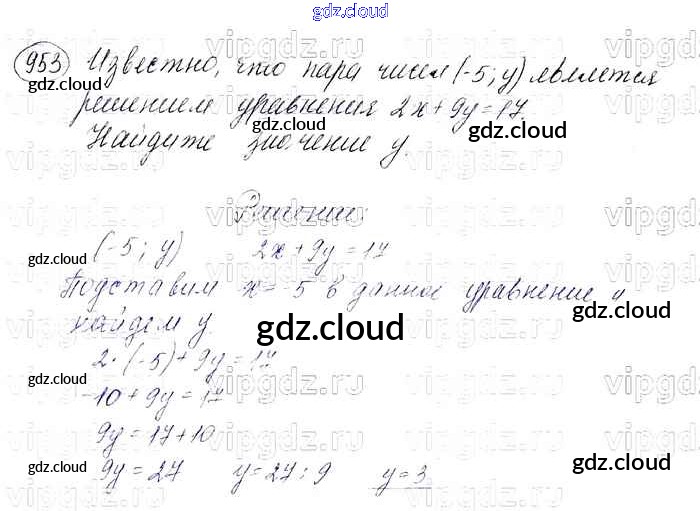 gdz.cloud
953 Известно, что пара чисел (-5; y) является
решением уравнения 2x + 9y = 17.
Найдите значение y.
Решение:
(-5; y) 2x + 9y = 17
Подставим x = -5 в данное уравнение и
найдем y.
2·(-5) + 9y = 17
-10 + 9y = 17
9y = 17 + 10
9y = 27 y = 27 : 9 y = 3
gdz.cloud
gdz.cloud
gdz.cloud
gdz.cloud
gdz.cloud
gdz.cloud
gdz.cloud
gdz.cloud
gdz.cloud
vipgdz.ru